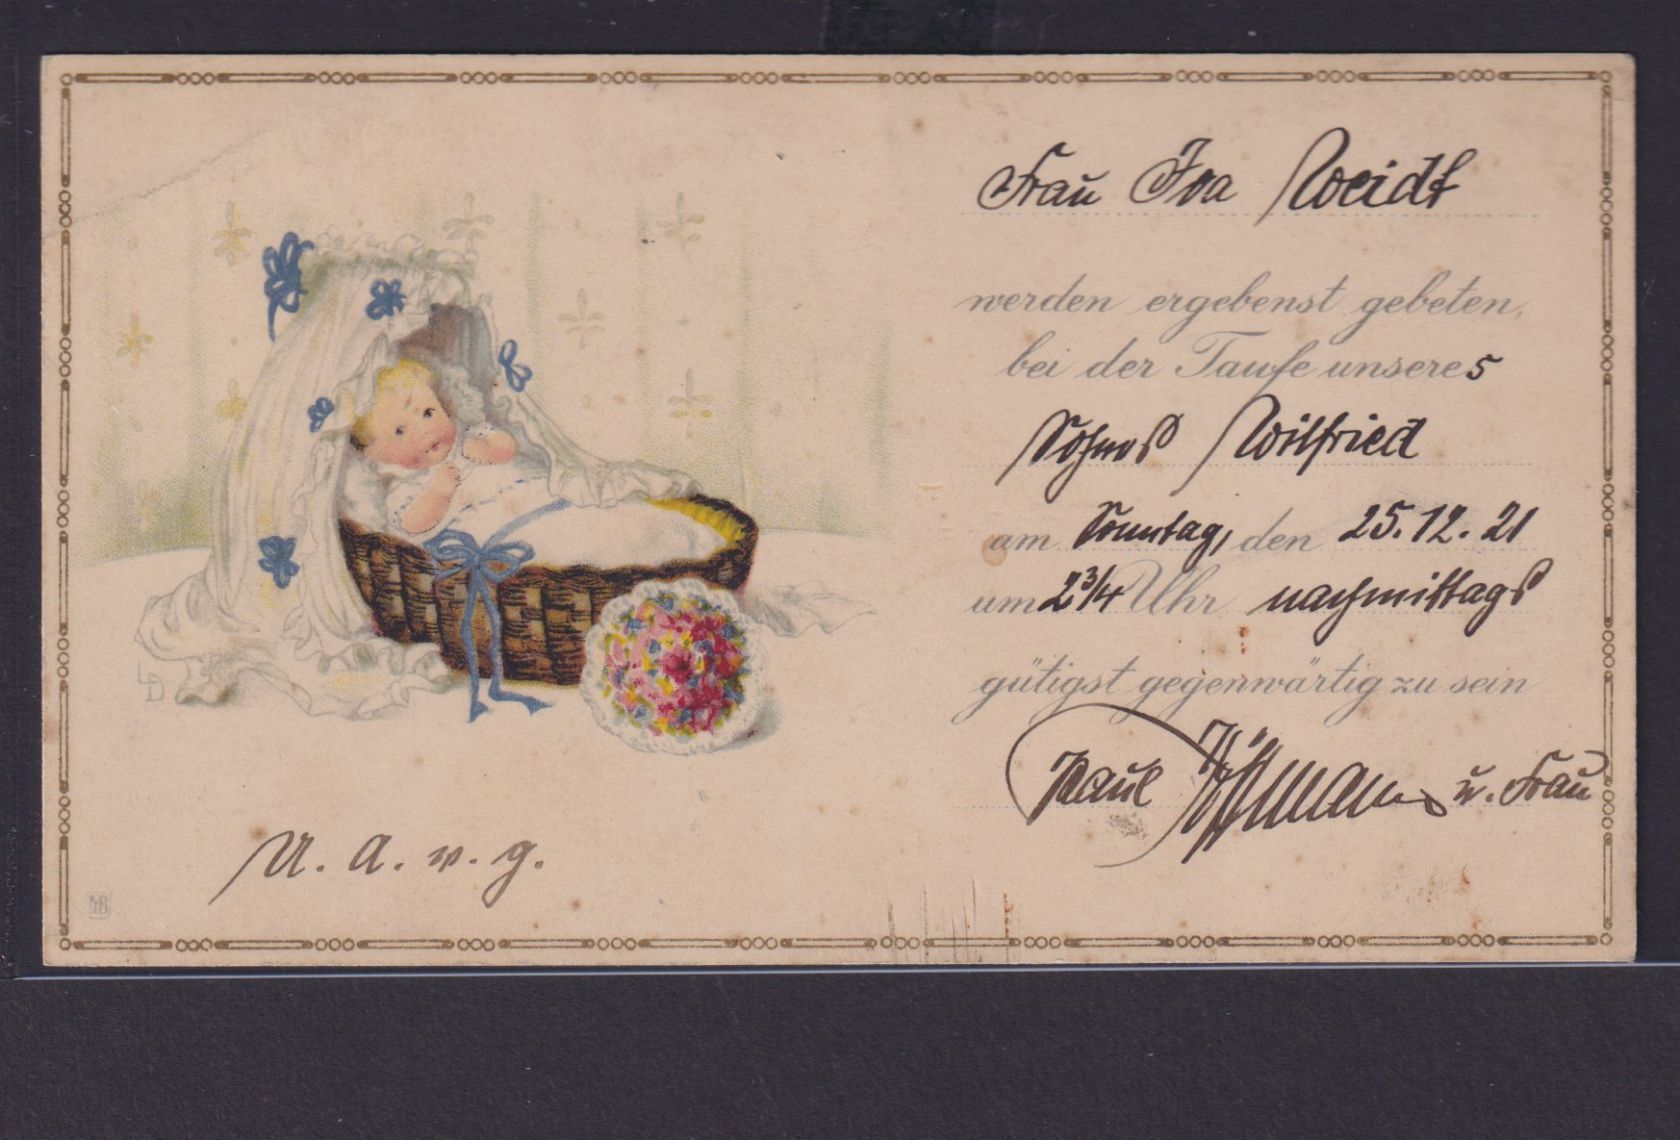 Frau Iva Weidt
werden ergebenst gebeten,
bei der Taufe unseres
Sohnes Wilfried
am Sonntag, den 25.12.21
um 2 3/4 Uhr nachmittags
gütigst gegenwärtig zu sein
Paul u. Frau
U. A. w. g.
LD
MB